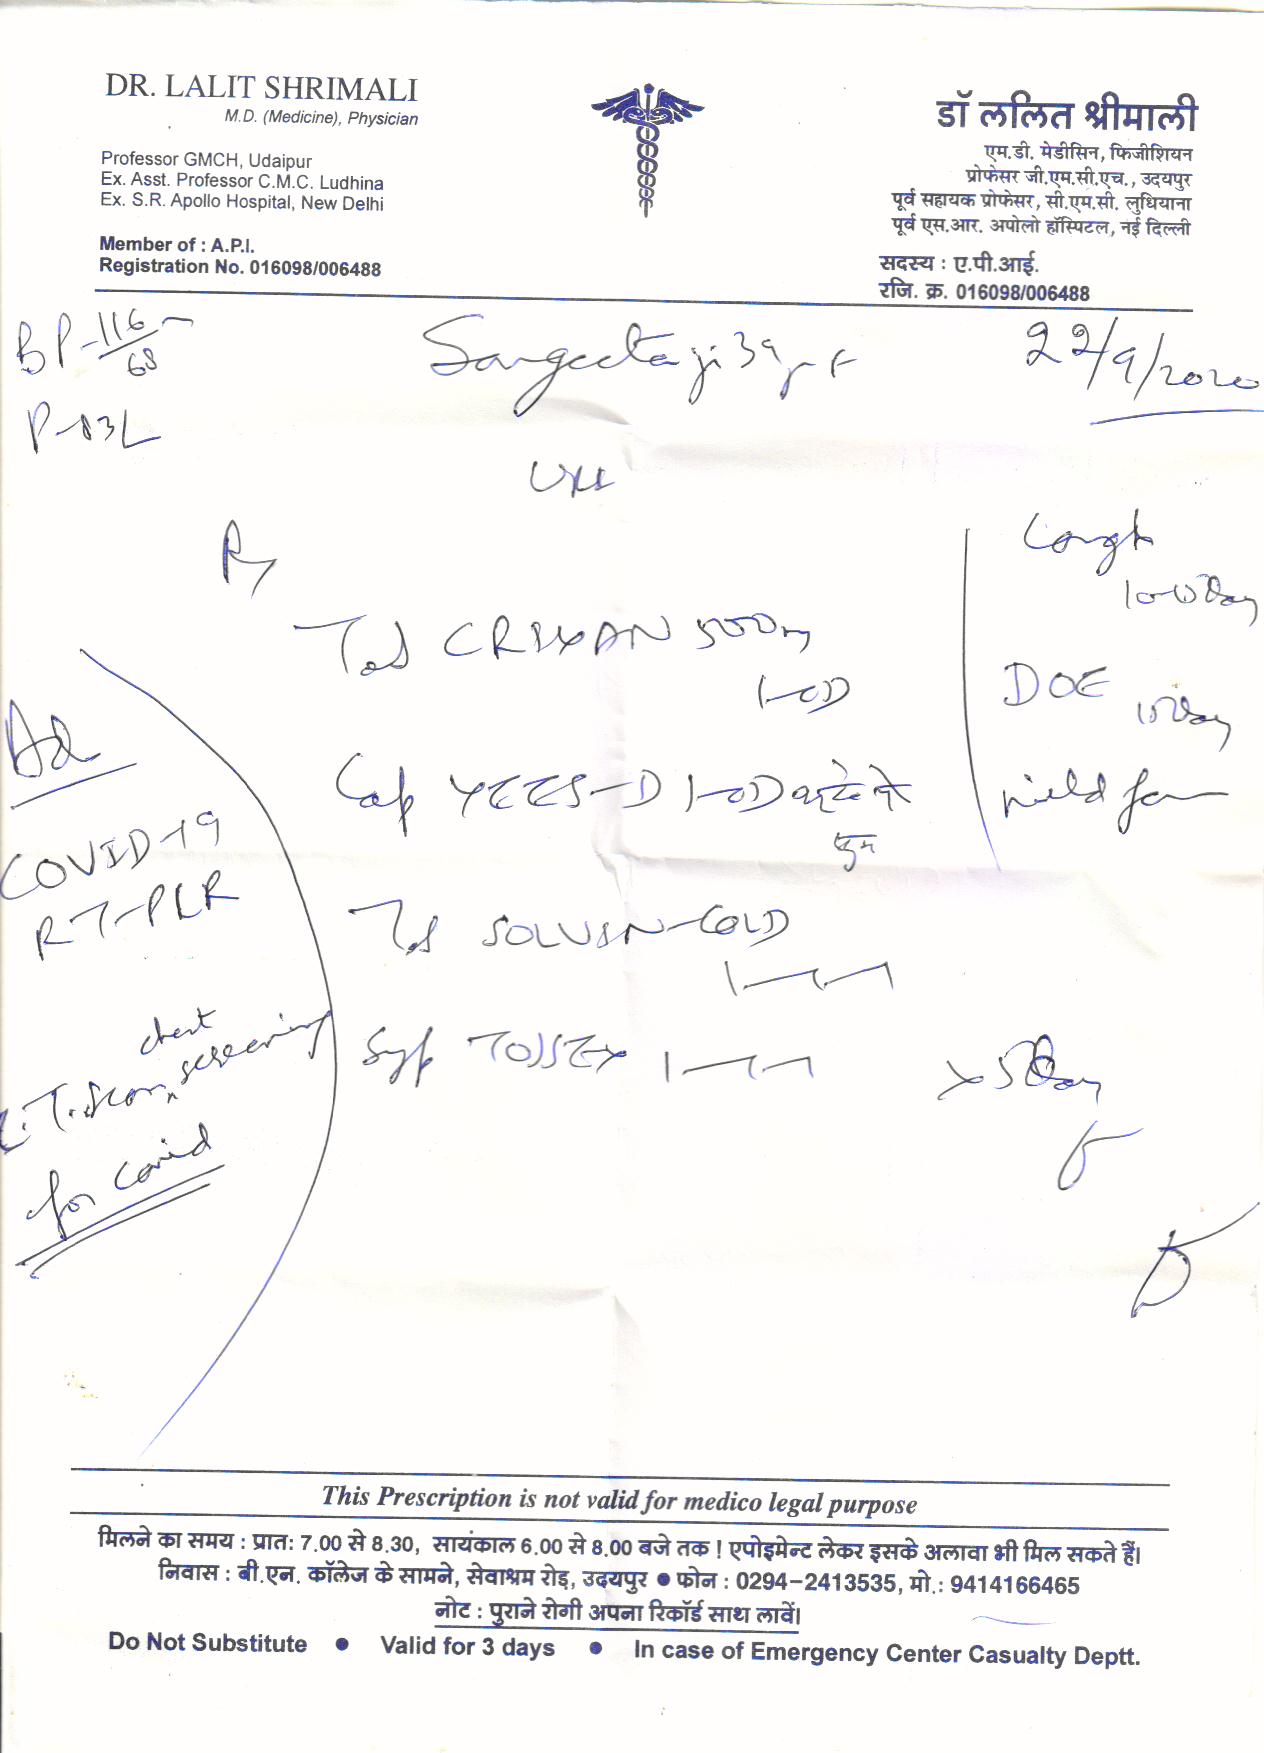 DR. LALIT SHRIMALI
M.D. (Medicine), Physician
Professor GMCH, Udaipur
Ex. Asst. Professor C.M.C. Ludhina
Ex. S.R. Apollo Hospital, New Delhi
Member of : A.P.I.
Registration No. 016098/006488
डॉ ललित श्रीमाली
एम.डी. मेडीसिन, फिजीशियन
प्रोफेसर जी.एम.सी.एच., उदयपुर
पूर्व सहायक प्रोफेसर, सी.एम.सी. लुधियाना
पूर्व एस.आर. अपोलो हॉस्पिटल, नई दिल्ली
सदस्य : ए.पी.आई.
रजि. क्र. 016098/006488
BP-116/68
Sangeeta ji 39 yr F
22/9/2020
Cough
DOE
Tab CRIXAN 500m
1-OD
Cap YEES-D 1-OD
Tab SOLVIN-COLD
1-1-1
Syp TOSSEX 1-1-1
x 5 Day
Ad
COVID-19
RT-PCR
chest
C.T. Scan screening
for Covid
This Prescription is not valid for medico legal purpose
मिलने का समय : प्रातः 7.00 से 8.30, सायंकाल 6.00 से 8.00 बजे तक ! एपोइमेन्ट लेकर इसके अलावा भी मिल सकते हैं।
निवास : बी.एन. कॉलेज के सामने, सेवाश्रम रोड़, उदयपुर ● फोन : 0294-2413535, मो.: 9414166465
नोट : पुराने रोगी अपना रिकॉर्ड साथ लावें।
Do Not Substitute ● Valid for 3 days ● In case of Emergency Center Casualty Deptt.